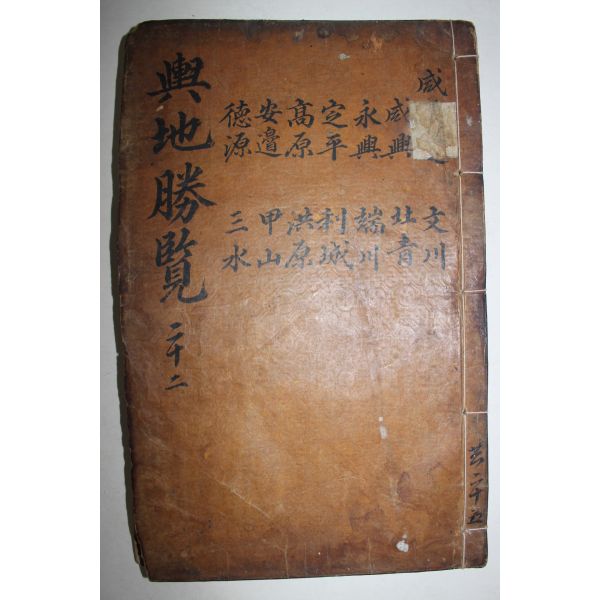 輿地勝覧 二十二
咸
咸興
永興
定平
高原
安邉
徳源
文川
北青
端川
利城
洪原
甲山
三水
共二十五